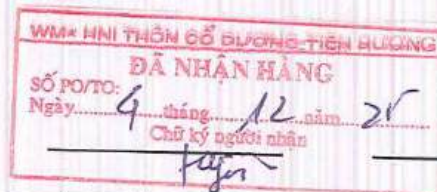 WM+ HNI THÔN CỔ DƯƠNG-TIÊN DƯƠNG
ĐÃ NHẬN HÀNG
SỐ PO/TO:
Ngày 4 tháng 12 năm 25
Chữ ký người nhận